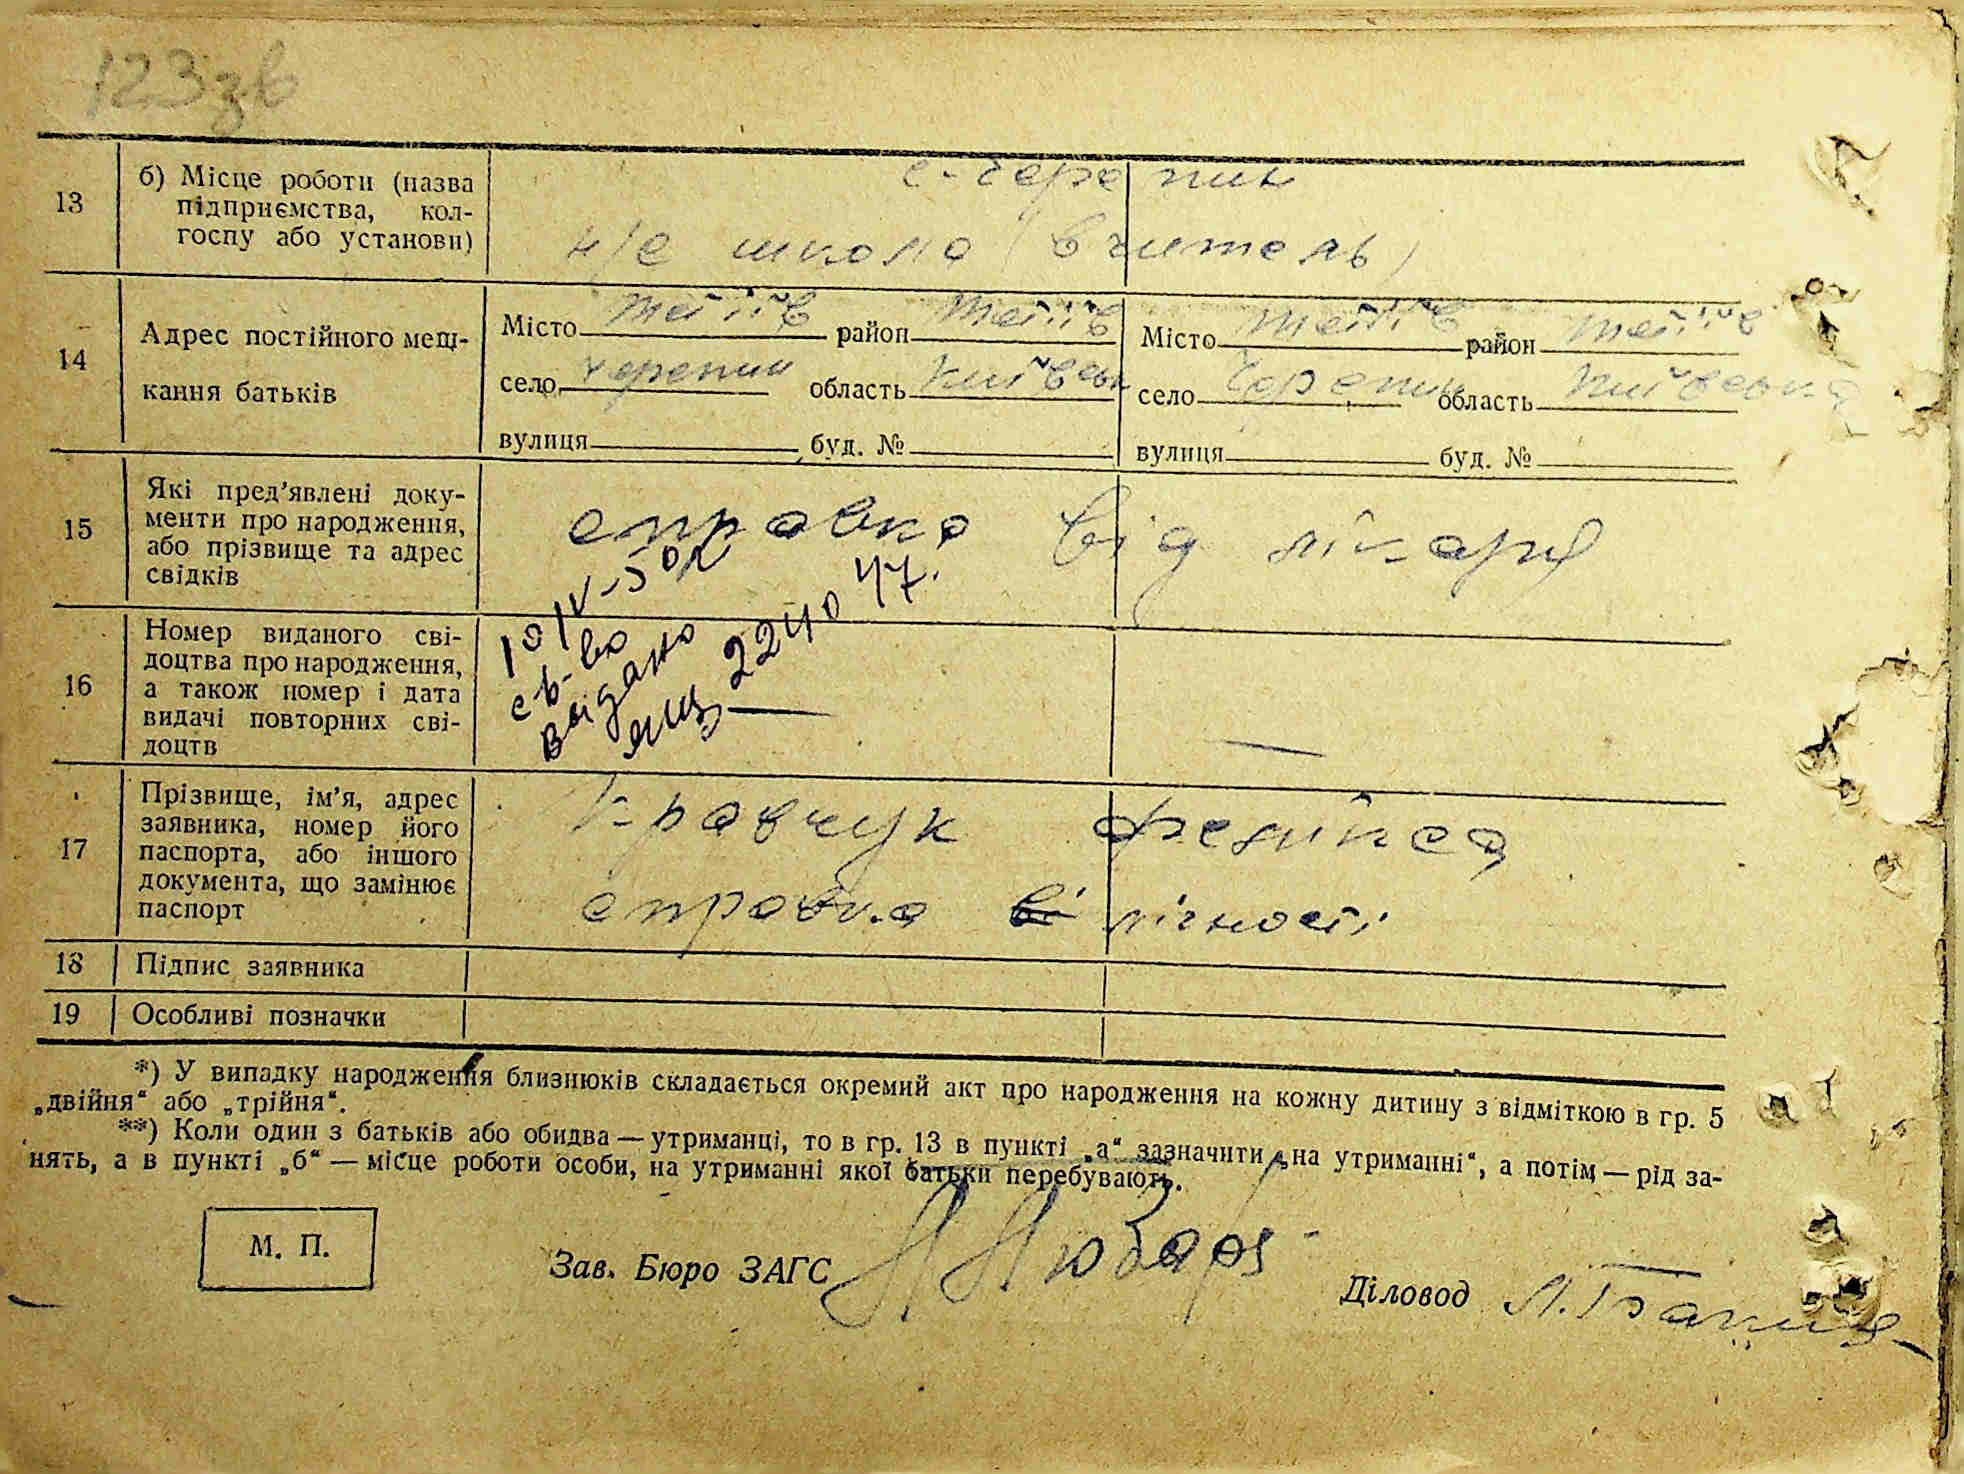 123зв
13
б) Місце роботи (назва
підприємства, кол-
госпу або установи)
с. Черепин
н/с школа (вчитель)
14
Адрес постійного меш-
кання батьків
Місто Тетіїв район Тетіїв
село Черепин область Київськ
вулиця буд. №
Місто Тетіїв район Тетіїв
село Черепин область Київська
вулиця буд. №
15
Які пред'явлені доку-
менти про народження,
або прізвище та адрес
свідків
справка від лікаря
16
Номер виданого сві-
доцтва про народження,
а також номер і дата
видачі повторних сві-
доцтв
10/IV-50р
св-во
видано
224047.
—
17
Прізвище, ім'я, адрес
заявника, номер його
паспорта, або іншого
документа, що замінює
паспорт
Кравчук
справка ві лічності
18
Підпис заявника
19
Особливі позначки
*) У випадку народження близнюків складається окремий акт про народження на кожну дитину з відміткою в гр. 5
„двійня“ або „трійня“.
**) Коли один з батьків або обидва — утриманці, то в гр. 13 в пункті „а“ зазначити „на утриманні“, а потім — рід за-
нять, а в пункті „б“ — місце роботи особи, на утриманні якої батьки перебувають.
М. П.
Зав. Бюро ЗАГС
Діловод